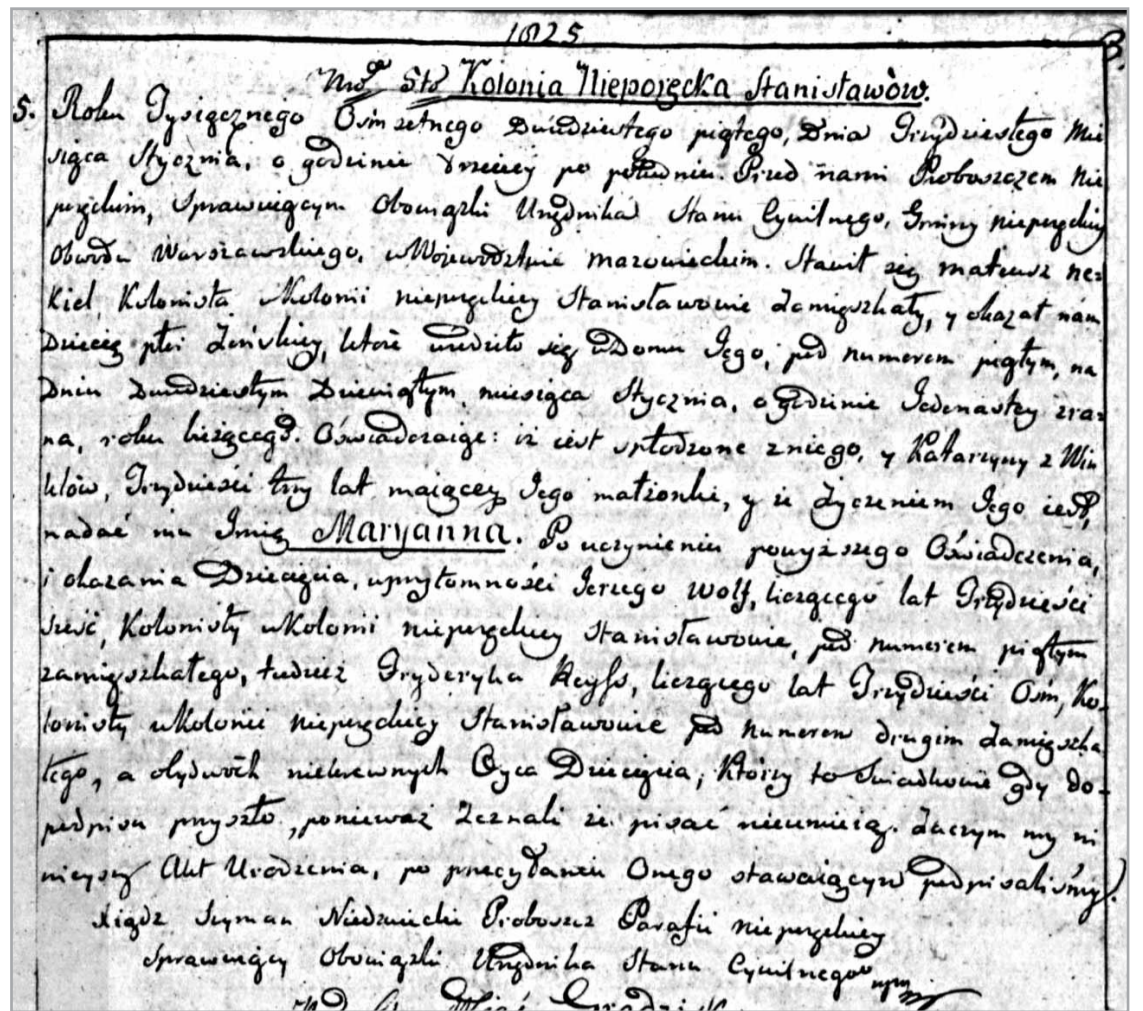 1825
3.
Nro 5to Kolonia Nieporęcka Stanisławów.
5. Roku Tysięcznego Osmsetnego Dwudziestego piątego, Dnia Trzydziestego Mie
siąca Stycznia, o godzinie trzeciey po południu. Przed nami Proboszczem Nie
poręckim, Sprawuiącym Obowiązki Urzędnika Stanu Cywilnego, Gminy nieporęckiey
Obwodu Warszawskiego, w Wojewodztwie mazowieckim. Stawił się mateusz ne=
kiel, Kolonista w Kolonii nieporęckiey Stanisławowie Zamięszkały, y okazał nam
Dziecię płci Żeńskiey, które urodziło się w Domu Jego, pod numerem piątym, na
Dniu Dwudziestym Dziewiątym, miesiąca Stycznia, o godzinie Jedenastey zra=
na, roku bieżącego. Oświadczaiąc: iż iest spłodzone z niego, y Katarzyny z Win
klów, Trzydzieści trzy lat maiącey Jego małżonki, y że Życzeniem Jego iest,
nadać mu Imię Maryanna. Po uczynieniu powyższego Oświadczenia,
i okazania Dziecięcia, w przytomności Jerzego Wolf, liczącego lat Trzydzieści
sześć, Kolonisty w Kolonii nieporęckiey Stanisławowie, pod numerem piątym
zamięszkałego, tudzież Fryderyka Reyss, liczącego lat Trzydzieści Ośm, Ko=
lonisty w Kolonii nieporęckiey Stanisławowie pod Numerem drugim Zamięszka
łego, a obydwóch niekrewnych Oyca Dziecięcia; Którzy to Swiadkowie gdy do=
podpisu przyszło, ponieważ Zeznali że pisać nieumieią. Zaczym my ni
nieyszy Akt Urodzenia, po przeczytaniu Onego stawaiącym podpisaliśmy.
Xiądz Szyman Niedzwiecki Proboszcz Parafii nieporęckiey
Sprawuiący Obowiązki Urzędnika Stanu Cywilnego